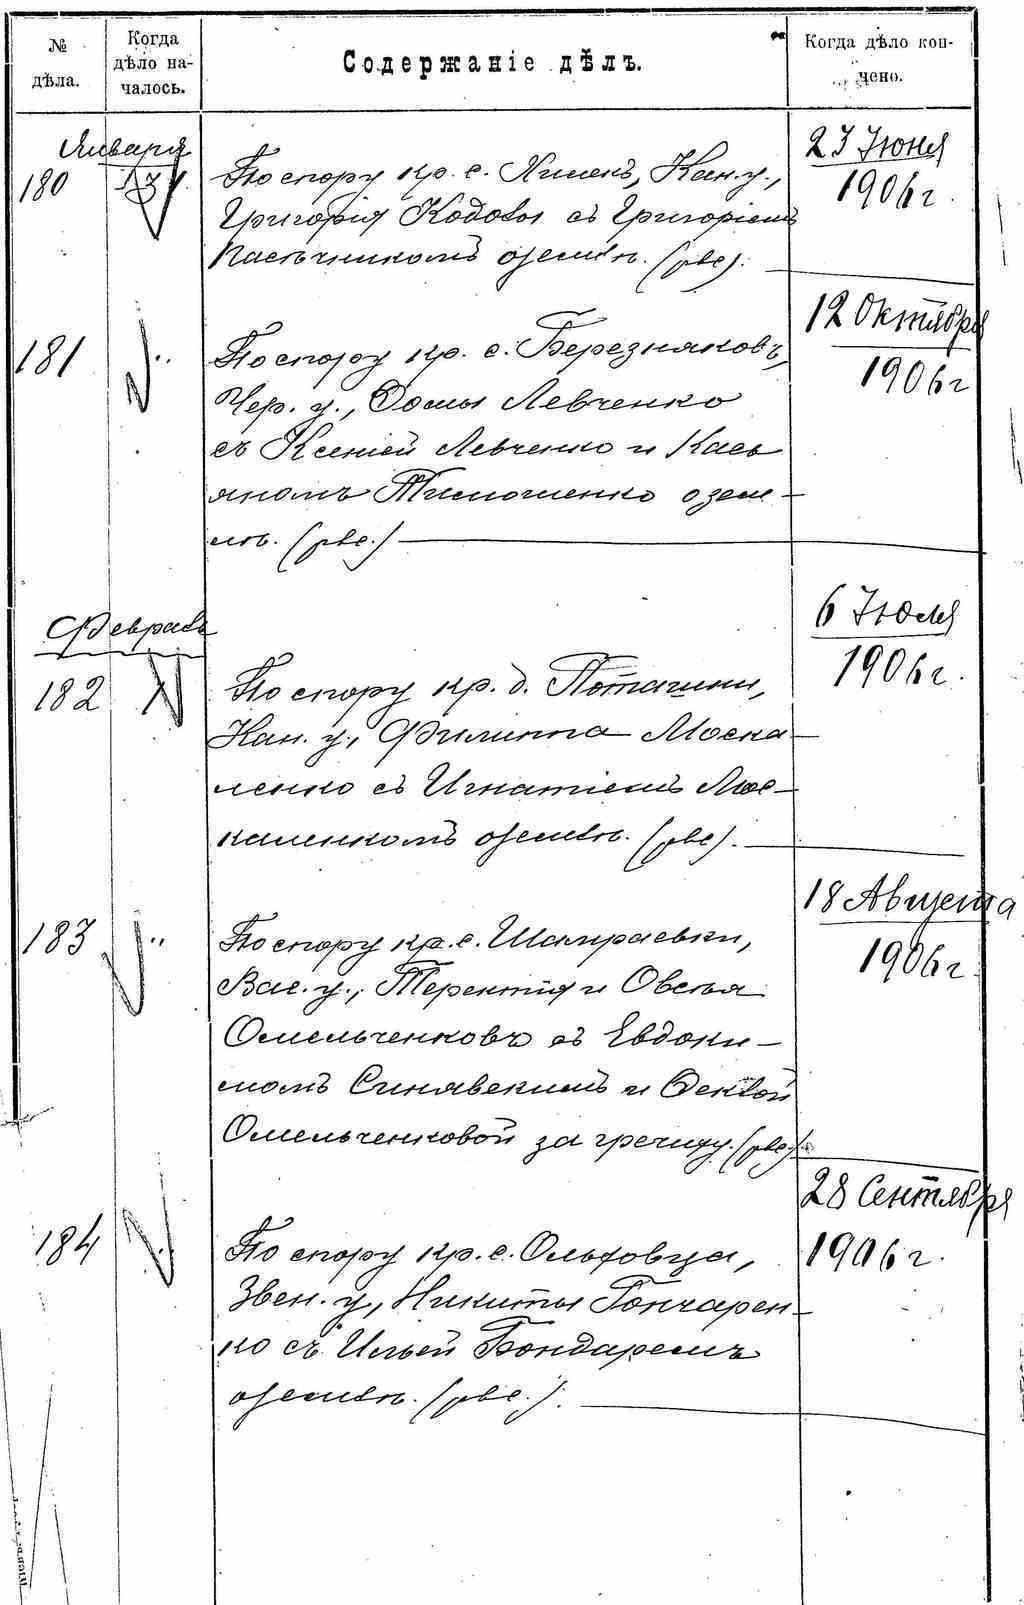 № дѣла.
Когда дѣло началось.
Содержаніе дѣлъ.
Когда дѣло кончено.
Января
180
По спору кр. с. Хмель, Кан. у.,
Григорія Кодовы съ Григоріемъ
Пасѣчникомъ о землѣ. (рвс).
23 Іюня
1906 г.
181
По спору кр. с. Березняковъ,
Чер. у., Ѳомы Левченко
съ Ксеніей Левченко и Касья
яномъ Тимошенко о зем-
лѣ. (рвс.)
12 Октября
1906 г
Февраль
182
По спору кр. д. Поташни,
Кан. у., Филиппа Моска-
ленко съ Игнатіемъ Мос-
каленкомъ о землѣ. (рвс).
6 Іюля
1906 г.
183
По спору кр. с. Шамраевки,
Вас. у., Терентія и Овсѣя
Омельченковъ съ Евдоки-
момъ Синявскимъ и Ѳеклой
Омельченковой за гречиху. (рвс).
18 Августа
1906 г.
184
По спору кр. с. Ольховца,
Звен. у., Никиты Гончарен-
ко съ Ильей Бондаремъ
о землѣ. (рвс.).
28 Сентября
1906 г.